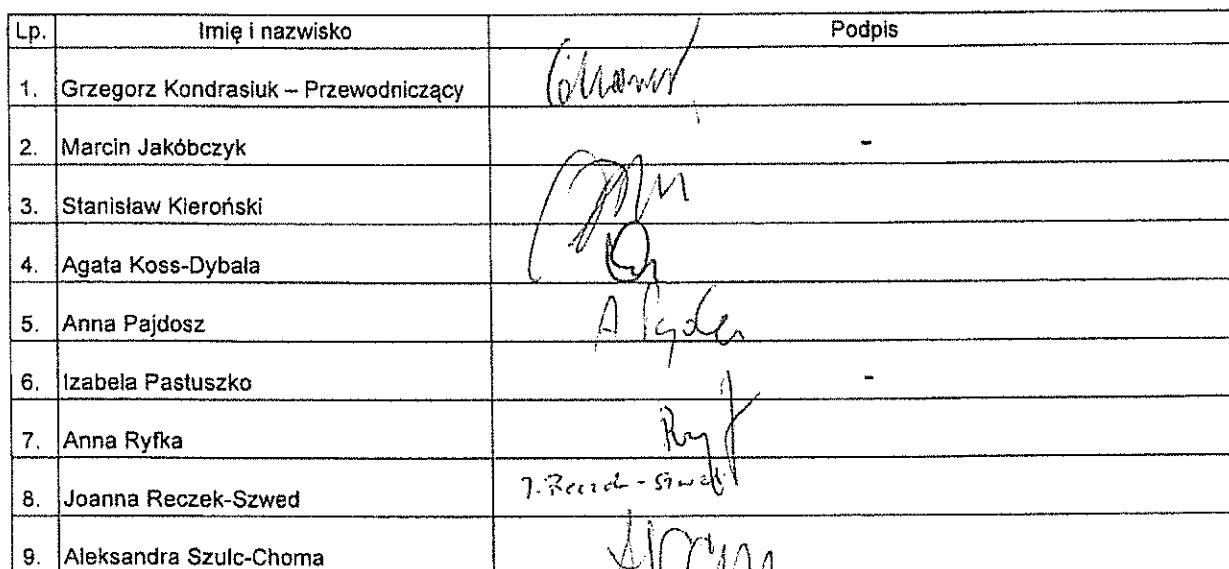 Lp. Imię i nazwisko Podpis
1. Grzegorz Kondrasiuk – Przewodniczący
2. Marcin Jakóbczyk -
3. Stanisław Kieroński
4. Agata Koss-Dybała
5. Anna Pajdosz
6. Izabela Pastuszko -
7. Anna Ryfka
8. Joanna Reczek-Szwed J. Reczek-Szwed
9. Aleksandra Szulc-Choma